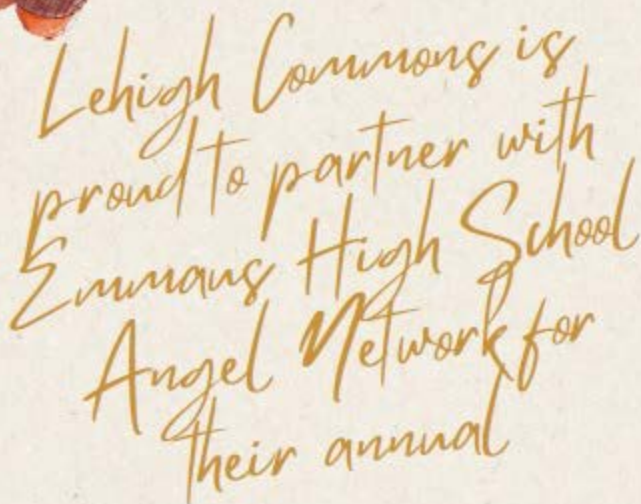 Lehigh Commons is
proud to partner with
Emmaus High School
Angel Network for
their annual